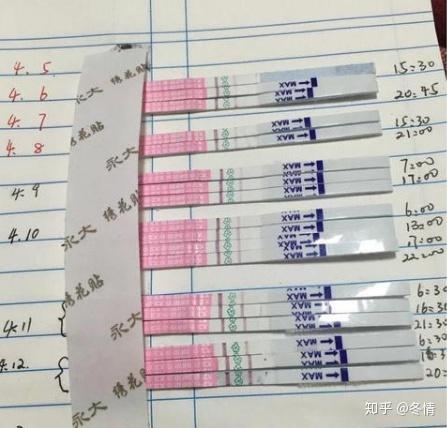 4.5
15:30
4.6
20:45
4.7
15:30
4.8
21:00
4.9
7:00
17:00
4.10
6:00
13:00
17:00
22:00
4.11
6:30
16:30
21:30
4.12
6:30
20:
永大 绣花贴
永大 绣花贴
永大 绣花贴
永大 绣花贴
MAX
MAX
MAX
MAX
MAX
MAX
MAX
MAX
MAX
MAX
MAX
MAX
知乎 @冬情